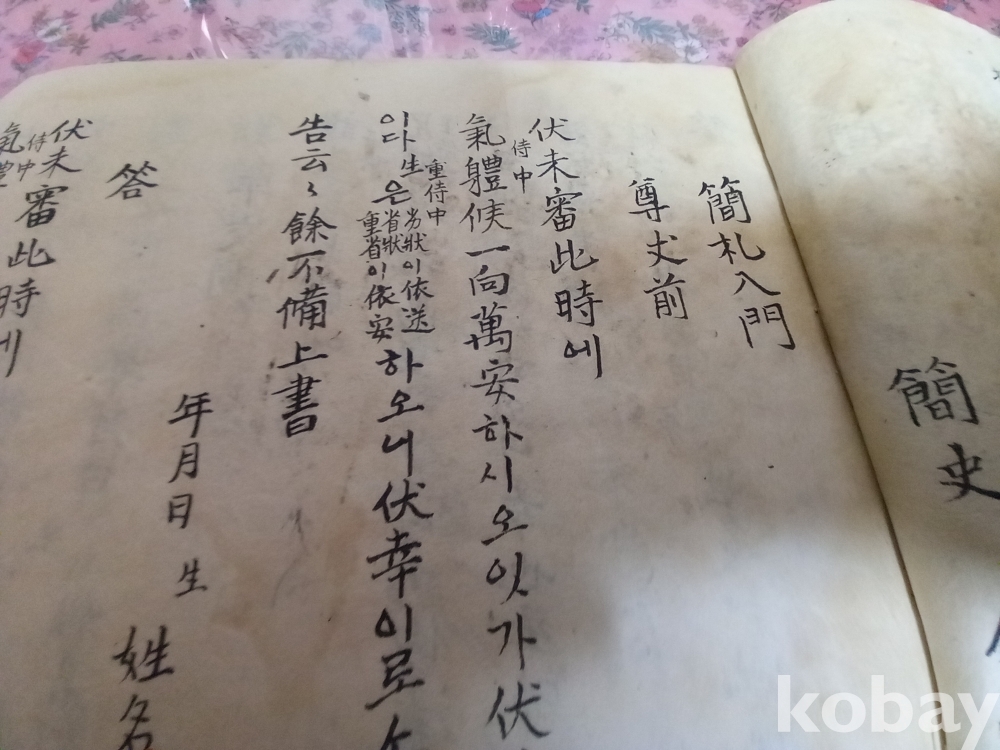 簡史
簡札入門
尊丈前
伏未審此時에
侍中
氣體候一向萬安하시오잇가伏
이다生은
重侍中
劣狀이依送
省狀
重省이依安
하오니伏幸이로
告云〻餘不備上書
年月日 生 姓名
答
伏未審此時에
侍中
氣體
kobay